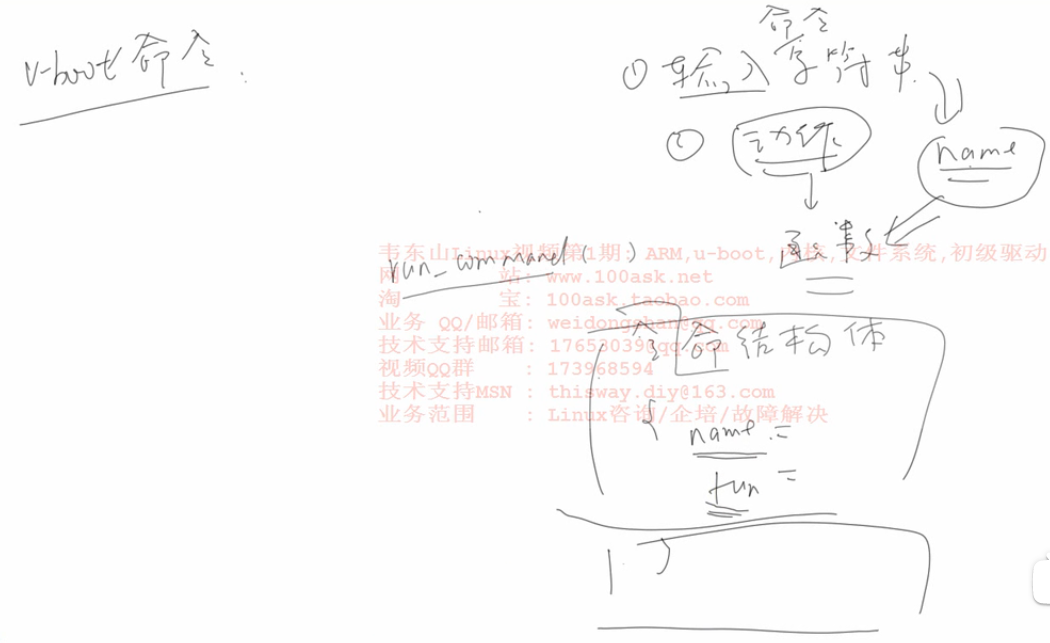 u-boot 命令:
命令
① 输入字符串
② 动作
name
函数
run_command( )
韦东山Linux视频第1期:ARM,u-boot,内核,文件系统,初级驱动
网 站: www.100ask.net
淘 宝: 100ask.taobao.com
业务 QQ/邮箱: weidongshan@qq.com
技术支持邮箱: 17653039@qq.com
视频QQ群 : 173968594
技术支持MSN : thisway.diy@163.com
业务范围 : Linux咨询/企培/故障解决
令命结构体
{ name =
fun =